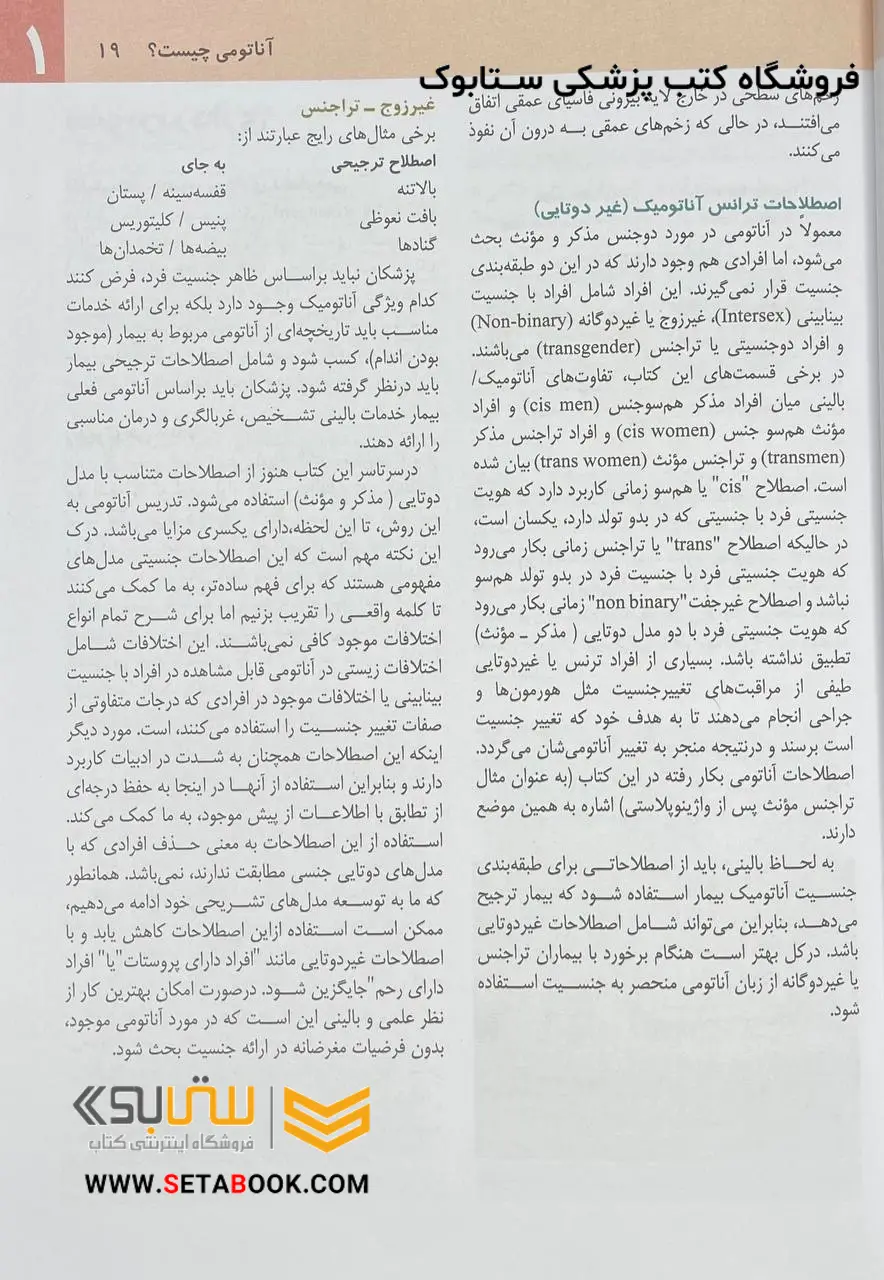 ۱
۱۹ آناتومی چیست؟
فروشگاه کتب پزشکی ستابوک
زخم‌های سطحی در خارج لایه بیرونی فاسیای عمقی اتفاق
می‌افتند، در حالی که زخم‌های عمقی به درون آن نفوذ
می‌کنند.
اصطلاحات ترانس آناتومیک (غیر دوتایی)
معمولاً در آناتومی در مورد دوجنس مذکر و مؤنث بحث
می‌شود، اما افرادی هم وجود دارند که در این دو طبقه‌بندی
جنسیت قرار نمی‌گیرند. این افراد شامل افراد با جنسیت
بینابینی (Intersex)، غیرزوج یا غیردوگانه (Non-binary)
و افراد دوجنسیتی یا تراجنس (transgender) می‌باشند.
در برخی قسمت‌های این کتاب، تفاوت‌های آناتومیک/
بالینی میان افراد مذکر هم‌سوجنس (cis men) و افراد
مؤنث هم‌سو جنس (cis women) و افراد تراجنس مذکر
(transmen) و تراجنس مؤنث (trans women) بیان شده
است. اصطلاح "cis" یا هم‌سو زمانی کاربرد دارد که هویت
جنسیتی فرد با جنسیتی که در بدو تولد دارد، یکسان است،
در حالیکه اصطلاح "trans" یا تراجنس زمانی بکار می‌رود
که هویت جنسیتی فرد با جنسیت فرد در بدو تولد هم‌سو
نباشد و اصطلاح غیرجفت"non binary" زمانی بکار می‌رود
که هویت جنسیتی فرد با دو مدل دوتایی ( مذکر ـ مؤنث)
تطبیق نداشته باشد. بسیاری از افراد ترنس یا غیردوتایی
طیفی از مراقبت‌های تغییرجنسیت مثل هورمون‌ها و
جراحی انجام می‌دهند تا به هدف خود که تغییر جنسیت
است برسند و درنتیجه منجر به تغییر آناتومی‌شان می‌گردد.
اصطلاحات آناتومی بکار رفته در این کتاب (به عنوان مثال
تراجنس مؤنث پس از واژینوپلاستی) اشاره به همین موضع
دارند.
به لحاظ بالینی، باید از اصطلاحاتی برای طبقه‌بندی
جنسیت آناتومیک بیمار استفاده شود که بیمار ترجیح
می‌دهد، بنابراین می‌تواند شامل اصطلاحات غیردوتایی
باشد. درکل بهتر است هنگام برخورد با بیماران تراجنس
یا غیردوگانه از زبان آناتومی منحصر به جنسیت استفاده
شود.
غیرزوج ـ تراجنس
برخی مثال‌های رایج عبارتند از:
اصطلاح ترجیحی به جای
بالاتنه قفسه‌سینه / پستان
بافت نعوظی پنیس / کلیتوریس
گنادها بیضه‌ها / تخمدان‌ها
پزشکان نباید براساس ظاهر جنسیت فرد، فرض کنند
کدام ویژگی آناتومیک وجود دارد بلکه برای ارائه خدمات
مناسب باید تاریخچه‌ای از آناتومی مربوط به بیمار (موجود
بودن اندام)، کسب شود و شامل اصطلاحات ترجیحی بیمار
باید درنظر گرفته شود. پزشکان باید براساس آناتومی فعلی
بیمار خدمات بالینی تشخیص، غربالگری و درمان مناسبی
را ارائه دهند.
درسرتاسر این کتاب هنوز از اصطلاحات متناسب با مدل
دوتایی ( مذکر و مؤنث) استفاده می‌شود. تدریس آناتومی به
این روش، تا این لحظه،دارای یکسری مزایا می‌باشد. درک
این نکته مهم است که این اصطلاحات جنسیتی مدل‌های
مفهومی هستند که برای فهم ساده‌تر، به ما کمک می‌کنند
تا کلمه واقعی را تقریب بزنیم اما برای شرح تمام انواع
اختلافات موجود کافی نمی‌باشند. این اختلافات شامل
اختلافات زیستی در آناتومی قابل مشاهده در افراد با جنسیت
بینابینی یا اختلافات موجود در افرادی که درجات متفاوتی از
صفات تغییر جنسیت را استفاده می‌کنند، است. مورد دیگر
اینکه این اصطلاحات همچنان به شدت در ادبیات کاربرد
دارند و بنابراین استفاده از آنها در اینجا به حفظ درجه‌ای
از تطابق با اطلاعات از پیش موجود، به ما کمک می‌کند.
استفاده از این اصطلاحات به معنی حذف افرادی که با
مدل‌های دوتایی جنسی مطابقت ندارند، نمی‌باشد. همانطور
که ما به توسعه مدل‌های تشریحی خود ادامه می‌دهیم،
ممکن است استفاده ازاین اصطلاحات کاهش یابد و با
اصطلاحات غیردوتایی مانند "افراد دارای پروستات"یا" افراد
دارای رحم"جایگزین شود. درصورت امکان بهترین کار از
نظر علمی و بالینی این است که در مورد آناتومی موجود،
بدون فرضیات مغرضانه در ارائه جنسیت بحث شود.
ستابوک
فروشگاه اینترنتی کتاب
WWW.SETABOOK.COM